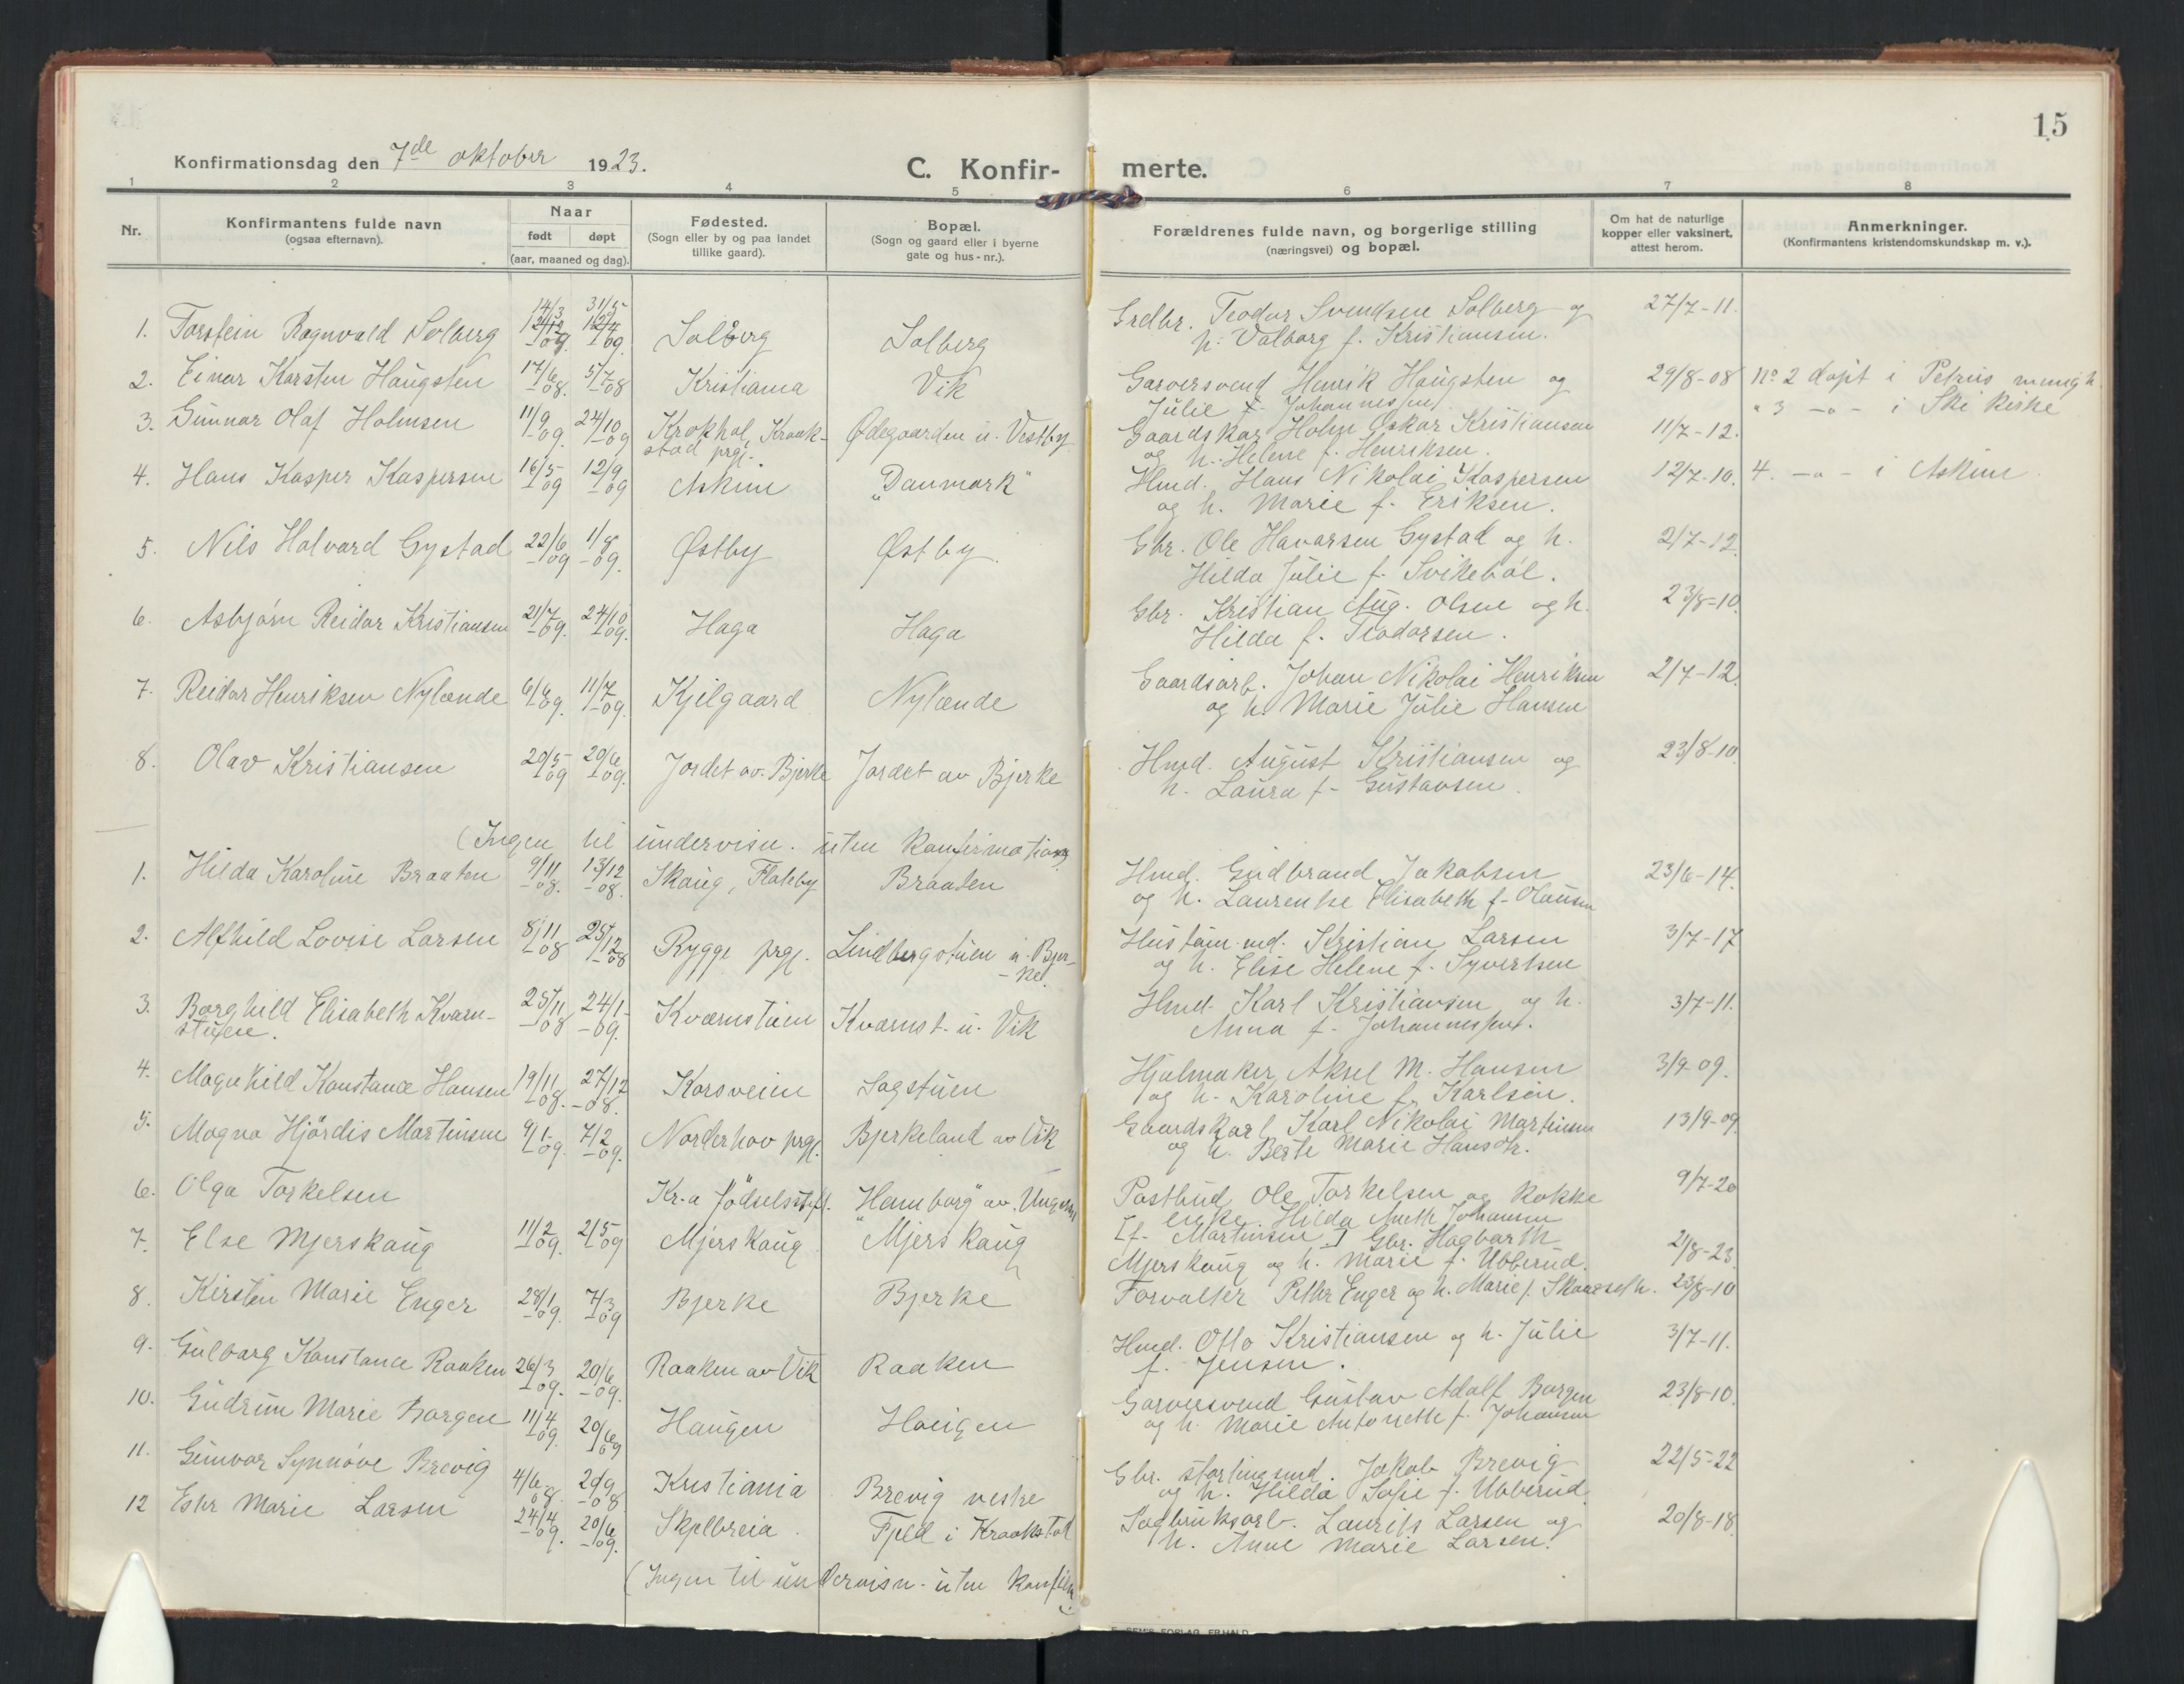 15
Konfirmationsdag den 7de oktober 1923.
C. Konfir-
merte.
1 2 3 4 5 6 7 8
Nr.
Konfirmantens fulde navn
(ogsaa efternavn).
Naar
født døpt
(aar, maaned og dag).
Fødested.
(Sogn eller by og paa landet
tillike gaard).
Bopæl.
(Sogn og gaard eller i byerne
gate og hus-nr.).
Forældrenes fulde navn, og borgerlige stilling
(næringsvei) og bopæl.
Om hat de naturlige
kopper eller vaksinert,
attest herom.
Anmerkninger.
(Konfirmantens kristendomskundskap m. v.).
1. Torstein Ragnvald Solberg 14/3 09. 31/5 09. Solberg Solberg Grdbr. Teodor Svendsen Solberg og 27/7-11.
h. Valborg f. Kristiansen.
2. Einar Karsten Haugsten 17/6 08. 5/7 08 Kristiania Vik Garversvend Henrik Haugsten og 29/8-08 No 2 døpt i Petrus menigh.
Julie f. Johannessen
3. Gunnar Olaf Holmsen 11/9 09. 24/10 09 Krokhol, Kraak- Ødegaarden u. Vestby Gaardskar Holm Oskar Kristiansen 11/7-12. " 3 -"- i Ski kirke
stad prgj. og h. Helene f. Henriksen.
4. Hans Kasper Kaspersen 16/5 09 12/9 09 Askim "Danmark" Hmd. Hans Nikolai Kaspersen 12/7-10. 4. -"- i Askim
og h. Marie f. Eriksen.
5. Nils Halvard Gystad 22/6 09 1/8 09. Østby Østby. Gbr. Ole Havarsen Gystad og h. 2/7-12.
Hilda Julie f. Svikebøl.
6. Asbjørn Reidar Kristiansen 21/7 09. 24/10 09. Haga Haga Gbr. Kristian Aug. Olsen og h. 23/8-10.
Hilda f. Teodorsen.
7. Reidar Henriksen Nylænde 6/6 09. 11/7 09. Kjelgaard Nylænde Gaardsarb. Johan Nikolai Henriksen 2/7-12.
og h. Marie Julie Hansen
8. Olav Kristiansen 20/5 09 20/6 09. Jordet av Bjerke Jordet av Bjerke Hmd. August Kristiansen og 23/8-10
h. Laura f. Gustavsen.
(Ingen til undervisn. uten konfirmation)
1. Hilda Karoline Braaten 9/11 08. 13/12 08. Skaug, Flateby Braaten Hmd. Gudbrand Jakobsen 23/6-14.
og h. Laurentse Elisabeth f. Olausen
2. Alfhild Lovise Larsen 8/11 08 25/12 08 Rygge prgj. Lindbergstuen u. Bjer- Hustømmd. Kristian Larsen 3/7-17
ke. og h. Elise Helene f. Syvertsen
3. Borghild Elisabeth Kvarn- 25/11 08 24/1 09. Kværnstuen Kværnst. u. Vik Hmd. Karl Kristiansen og h. 3/7-11.
stuen. Anna f. Johannessen.
4. Magnhild Konstance Hansen 19/11 08. 27/12 08. Korsveien Sagstuen Hjulmaker Aksel M. Hansen 3/9-09.
og h. Karoline f. Karlsen.
5. Magna Hjørdis Martinsen 9/1 09. 7/2 09. Norderhov prgj. Bjerkeland av Vik Gaardskarl Karl Nikolai Martinsen 13/9-09
og h. Berte Marie Hansdtr.
6. Olga Torkelsen Kr.a Fødselsstift. "Hamborg" av Postbud Ole Torkelsen og kokke 9/7-20
enke Hilda Aneth Johansen
7. Else Mjerskaug 11/2 09. 2/5 09 Mjerskaug Mjerskaug [f. Martinsen] Gbr. Hagbarth 21/8-23.
Mjerskaug og h. Marie f. Ubberud.
8. Kirsten Marie Enger 28/1 09. 7/3 09 Bjerke Bjerke Forvalter Pether Enger og h. Marie f. Skaarseth. 23/8-10
9. Gulborg Konstance Raaken 26/3 09. 20/6 09. Raaken av Vik Raaken Hmd. Otto Kristiansen og h. Julie 3/7-11.
f. Jensen.
10. Gudrun Marie Borgen 11/4 09. 20/6 09 Haugen Haugen Garversvend Gustav Adolf Borgen 23/8-10.
og h. Marie Antonette f. Johansen
11. Gunvor Synnøve Brevig 4/6 08. 20/9 08 Kristiania Brevig vestre Gbr. stortingsmd. Jakob Brevig 22/5-22
og h. Hilda Sofie f. Ubberud.
12 Ester Marie Larsen 24/4 09. 20/6 09. Skjelbreia. Fjeld i Kraakstad Sagbruksarb. Laurits Larsen og 20/8-18.
h. Anne Marie Larsen.
(Ingen til undervisn. uten konfirm.)
E. SEM'S FORLAG, FR.HALD